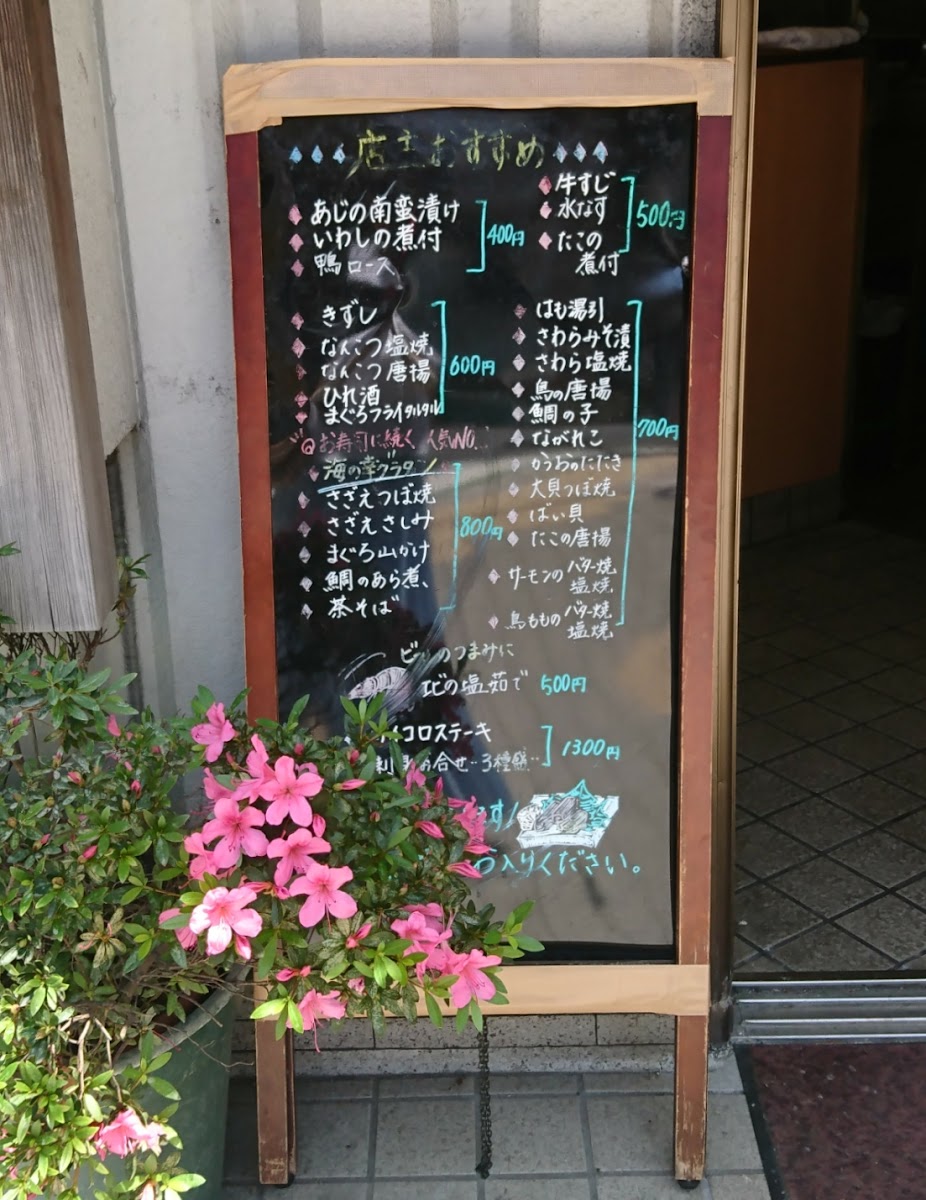 店主おすすめ
あじの南蛮漬け
いわしの煮付
鴨ロース
400円
牛すじ
水なす
たこの
煮付
500円
きずし
なんこつ塩焼
なんこつ唐揚
ひれ酒
まぐろフライタルタル
600円
お寿司に続く 人気NO.
海の幸グラタン
さざえつぼ焼
さざえさしみ
まぐろ山かけ
鯛のあら煮、
茶そば
800円
はも湯引
さわらみそ漬
さわら塩焼
鳥の唐揚
鯛の子
ながれこ
かつおのたたき
大貝つぼ焼
ばい貝
たこの唐揚
サーモンのバター焼
塩焼
鳥もものバター焼
塩焼
700円
のつまみに
エビの塩茹で 500円
コロステーキ
刺身の合せ‥3種盛‥
1300円
入りください。